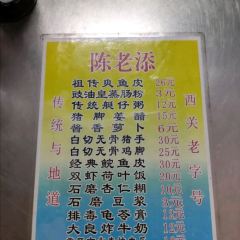 陈老添
传统与地道
西关老字号
祖传爽鱼皮 26元
豉油皇蒸肠粉 3元
传统艇仔粥 12元
猪脚姜醋 15元
酱香萝卜 6元
白切无骨猪手 30元
白切无骨鸡脚 25元
经典鲩鱼
双虾荷叶饭
石磨杏仁糊
石磨
排毒龟苓膏
大良炸牛奶